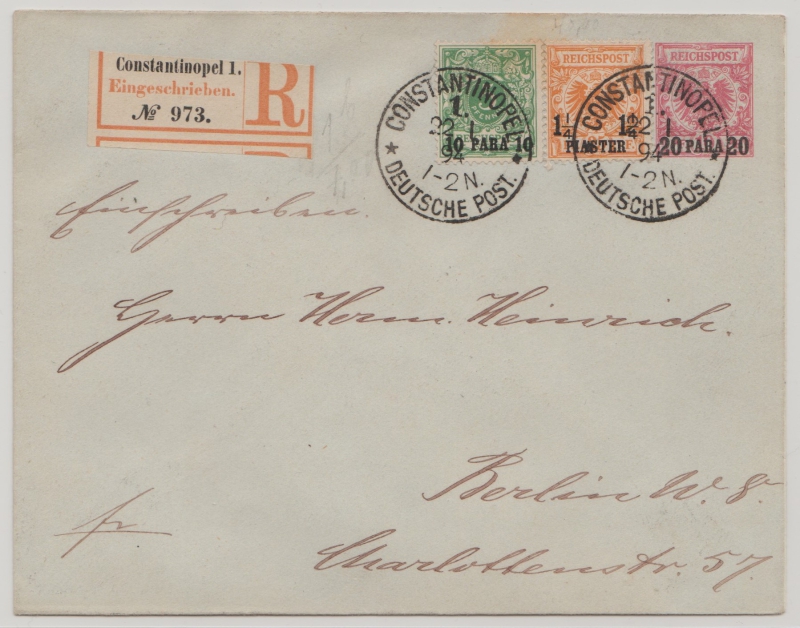 Constantinopel 1.
Eingeschrieben.
№ 973.
R
REICHSPOST
REICHSPOST
10 PARA 10
1¼ PIASTER 1¼
20 PARA 20
CONSTANTINOPEL
1.
22 1
94
1-2 N.
* DEUTSCHE POST. *
CONSTANTINOPEL
1.
22 1
94
1-2 N.
* DEUTSCHE POST. *
Einschreiben.
Herrn Herm. Heinrich.
Berlin W. 8.
fr
Charlottenstr. 57.